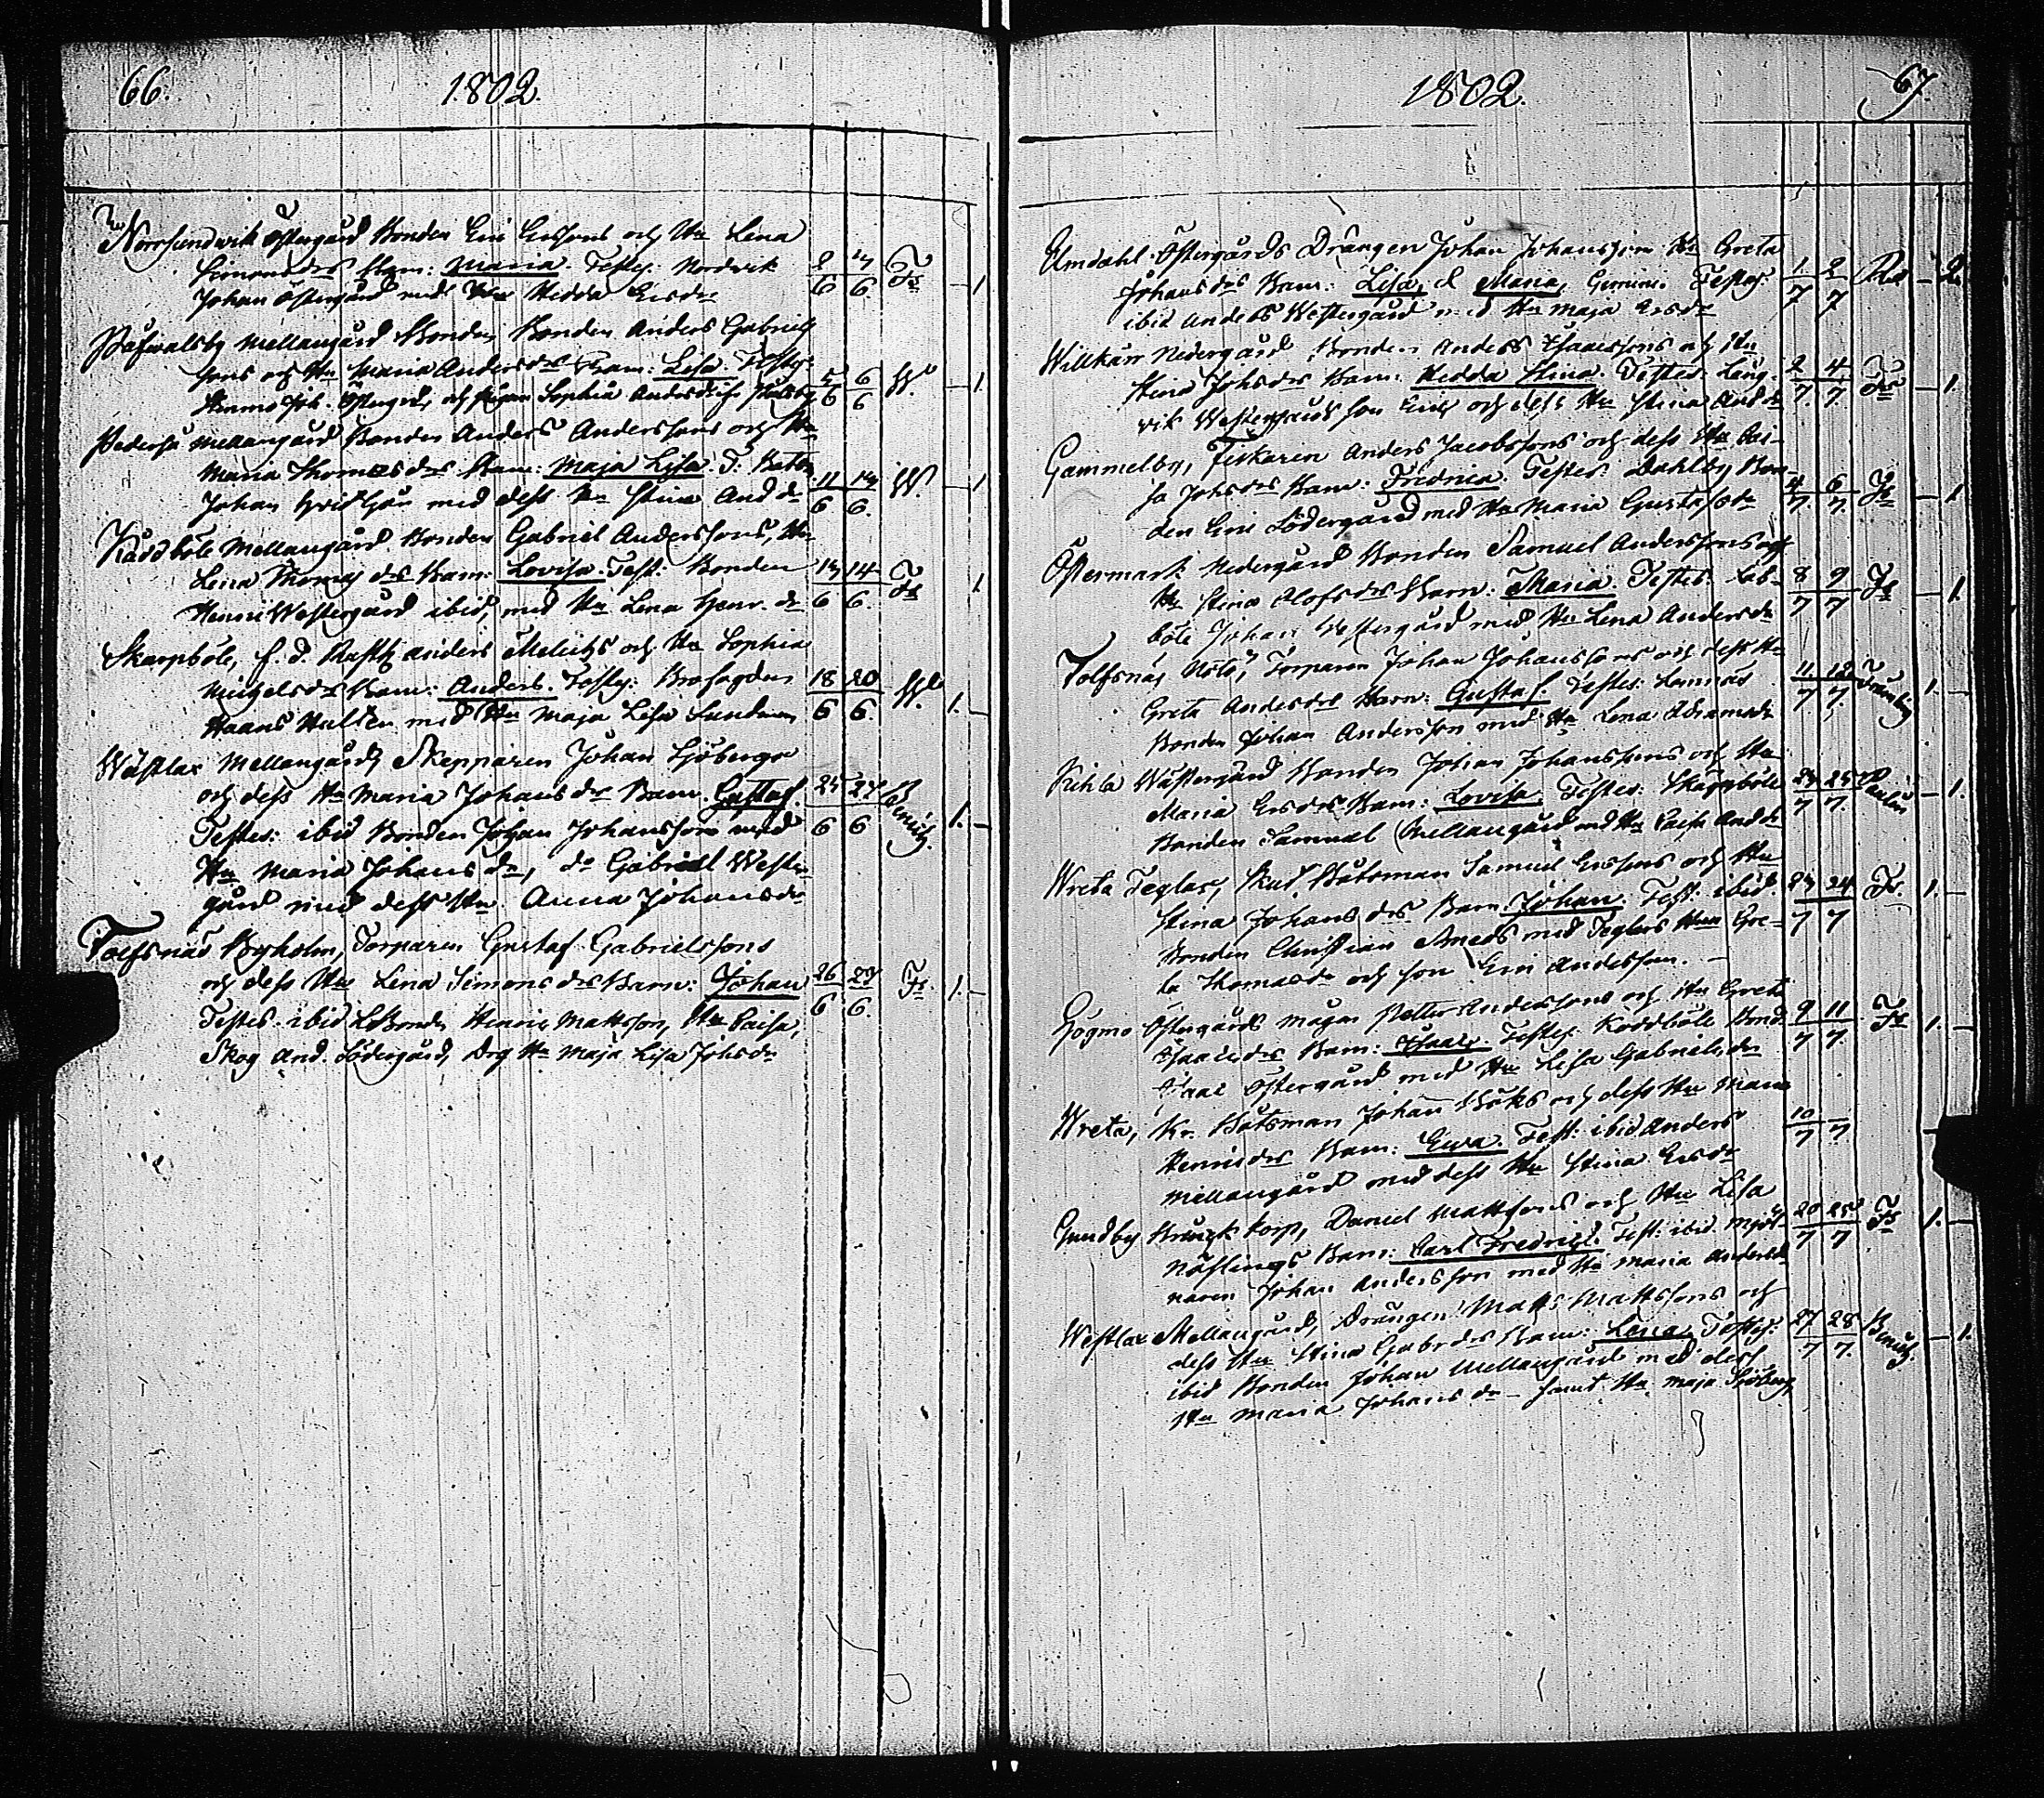 66. 1802.
Norrsundwik Östergård Bonden Eric Ericssons och Hu Lena
Simonsdrs Barn: Maria. Testes: Nordwik
Johan Östergård med Hu Hedda Ericsdr
2 3
6 6. Fs 1
Påfwalsby Mellangård Bonden Bonden Anders Gabriels
sons och Hu Maria Andersdrs Barn: Lisa. Testes:
Joh. Östergård, och Pigan Sophia Andersdr
5 6
6 6 W. 1.
Pederså Mellangård Bonden Anders Anderssons och Hu
Maria Thomasdrs Barn: Maja Lisa. T:
Johan med dess Hu Stina And dr
11 13
6 6. W. 1
Kåddböle Mellangård Bonden Gabriel Anderssons, Hu
Lena Thomasdrs Barn: Lovisa. Test: Bonden
Henric Westergård ibid, med Hu Lena Henr. dr
13 14
6 6. Fs 1
Skarpböle, f. d. anders och Hu Sophia
Michelsdrs Barn: Anders. Testes:
Hans Hulten med Hu Maja Lisa Sundman
18 20
6 6. W. 1.
Wästlax Mellangårds Skepparen Johan Sjöbergs
och dess Hu Maria Johansdrs Barn Gustaf.
Testes: ibid Bonden Johan Johansson med
Hu Maria Johansdr, do Gabriel Wester
gård med dess Hu Anna Johansdr
25 27
6 6 1.
Tolfsnäs Byholm, Torparen Gustaf Gabrielssons
och dess Hu Lena Simonsdrs Barn: Johan
Testes. ibid Bonden Henric Mattsson, Hu Caisa,
Skog And. Södergård, Drg Hu Maja Lisa Johsdr
26 27
6 6. Fs. 1.
1802. 67.
Elmdahl Östergårds Drängen Johan Johanssons Hu Greta
Johansdrs Barn: Lisa, & Maria, Gemini. Testes:
ibid Anders Westergård med Hu Maja Ericsdr
1. 2
7 7 2.
Willkärr Nedergård Bonden Anders Isaacssons och Hu
Stina Johsdrs Barn: Hedda Stina. Testes: Läng-
vik Westergårds son Eric och dess Hu Stina And dr
2 4
7. 7. Fs 1.
Gammelby, Fiskaren Anders Jacobssons och dess Hu Cai-
sa Johsdrs Barn: Fredrica. Testes: Dahlby Bon-
den Eric Södergård med Hu Maria Gustafsdr
4 6
7. 7. Fs 1
Östermark Nedergård Bonden Samuel Anderssons och
Hu Stina Olofsdrs Barn: Maria. Testes:
böle Johan Westergård med Hu Lena Andersdr
8 9
7 7 Fs 1.
Tolfsnäs Nötö, Torparen Johan Johanssons och dess Hu
Greta Andersdrs Barn: Gustaf. Testes: Lamnäs
Bonden Johan Andersson med Hu Lena
11. 12
7 7. 1.
Kihla Wästergård Bonden Johan Johanssons och Hu
Maria Ericsdrs Barn: Lovisa. Testes: Skäggböle
Bonden Samuel Mellangård med Hu Caisa And dr
23 25
7 7. 1.
Wreta Teglax, Båtsman Samuel Ericssons och Hu
Stina Johansdrs Barn Johan. Test: ibid
Bonden Christian Smeds med Teglars Hu Gre-
ta Thomasdr och son Eric Andersson.
23 24
7 7 Fs. 1.
Högmo Östergårds mågen Petter Anderssons och Hu Greta
Isaacsdrs Barn: Isaac. Testes: Kåddböle Bond.
Isaac Östergård med Hu Lisa Gabrielsdr
9 11
7 7. Fs 1.
Wreta, Kr. Båtsman Johan Böks och dess Hu Maria
Henricsdrs Barn: Ewa. Test: ibid Anders
Mellangård med dess Hu Stina Ericsdr
10
7 7
Gundby Torp, Daniel Mattssons och Hu Lisa
Näslings Barn: Carl Fredric. Test: ibid Mjöl-
naren Johan Andersson med Hu Maria Andersdr
20 25
7 7 Fs 1.
Westlax Mellangård, Drängen Matts Mattssons och
dess Hu Stina Gabrdrs Barn: Lena, Testes:
ibid Bonden Johan Mellangård med dess
Hu Maria Johansdr – samt Hu Maja Sjöberg
27 28
7 7. 1.